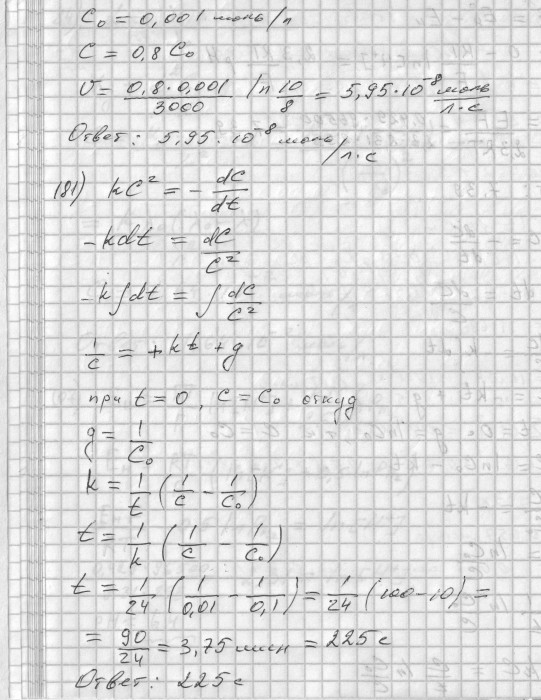 C₀ = 0,001 моль/л
C = 0,8 C₀
V = (0,8·0,001)/3000 ln 10/8 = 5,95·10⁻⁸ моль/(л·с)
Ответ: 5,95·10⁻⁸ моль/л·с
181) kC² = - dC/dt
-kdt = dC/C²
-k∫dt = ∫ dC/C²
1/C = +kt + g
при t = 0, C = C₀ откуд
g = 1/C₀
k = 1/t (1/C - 1/C₀)
t = 1/k (1/C - 1/C₀)
t = 1/24 (1/0,01 - 1/0,1) = 1/24 (100 - 10) =
= 90/24 = 3,75 мин = 225 с
Ответ: 225 с